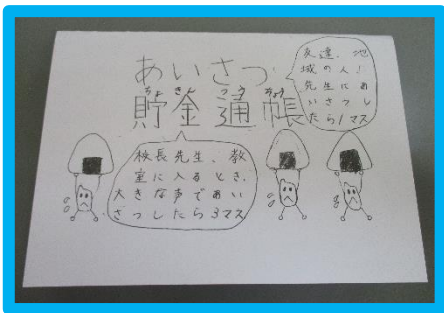 あいさつ
ちょ きん つう ちょう
貯金通帳
友達、地
域の人、
先生にあ
いさつし
たら1マス
校長先生、教
室に入るとき、
大きな声であい
さつしたら3マス